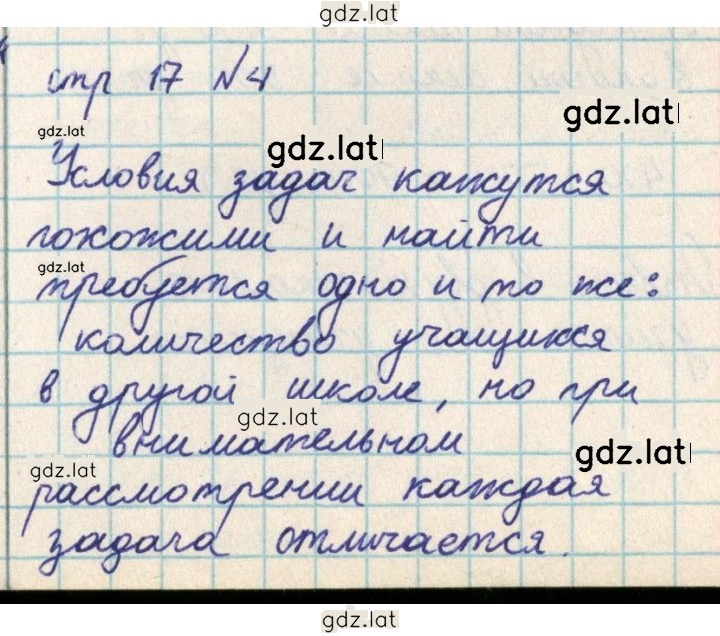 gdz.lat
стр 17 №4
gdz.lat
gdz.lat
gdz.lat
Условия задач кажутся
похожими и найти
gdz.lat
требуется одно и то же:
количество учащихся
в другой школе, но при
gdz.lat
внимательном
gdz.lat
gdz.lat
рассмотрении каждая
задача отличается.
gdz.lat
gdz.lat